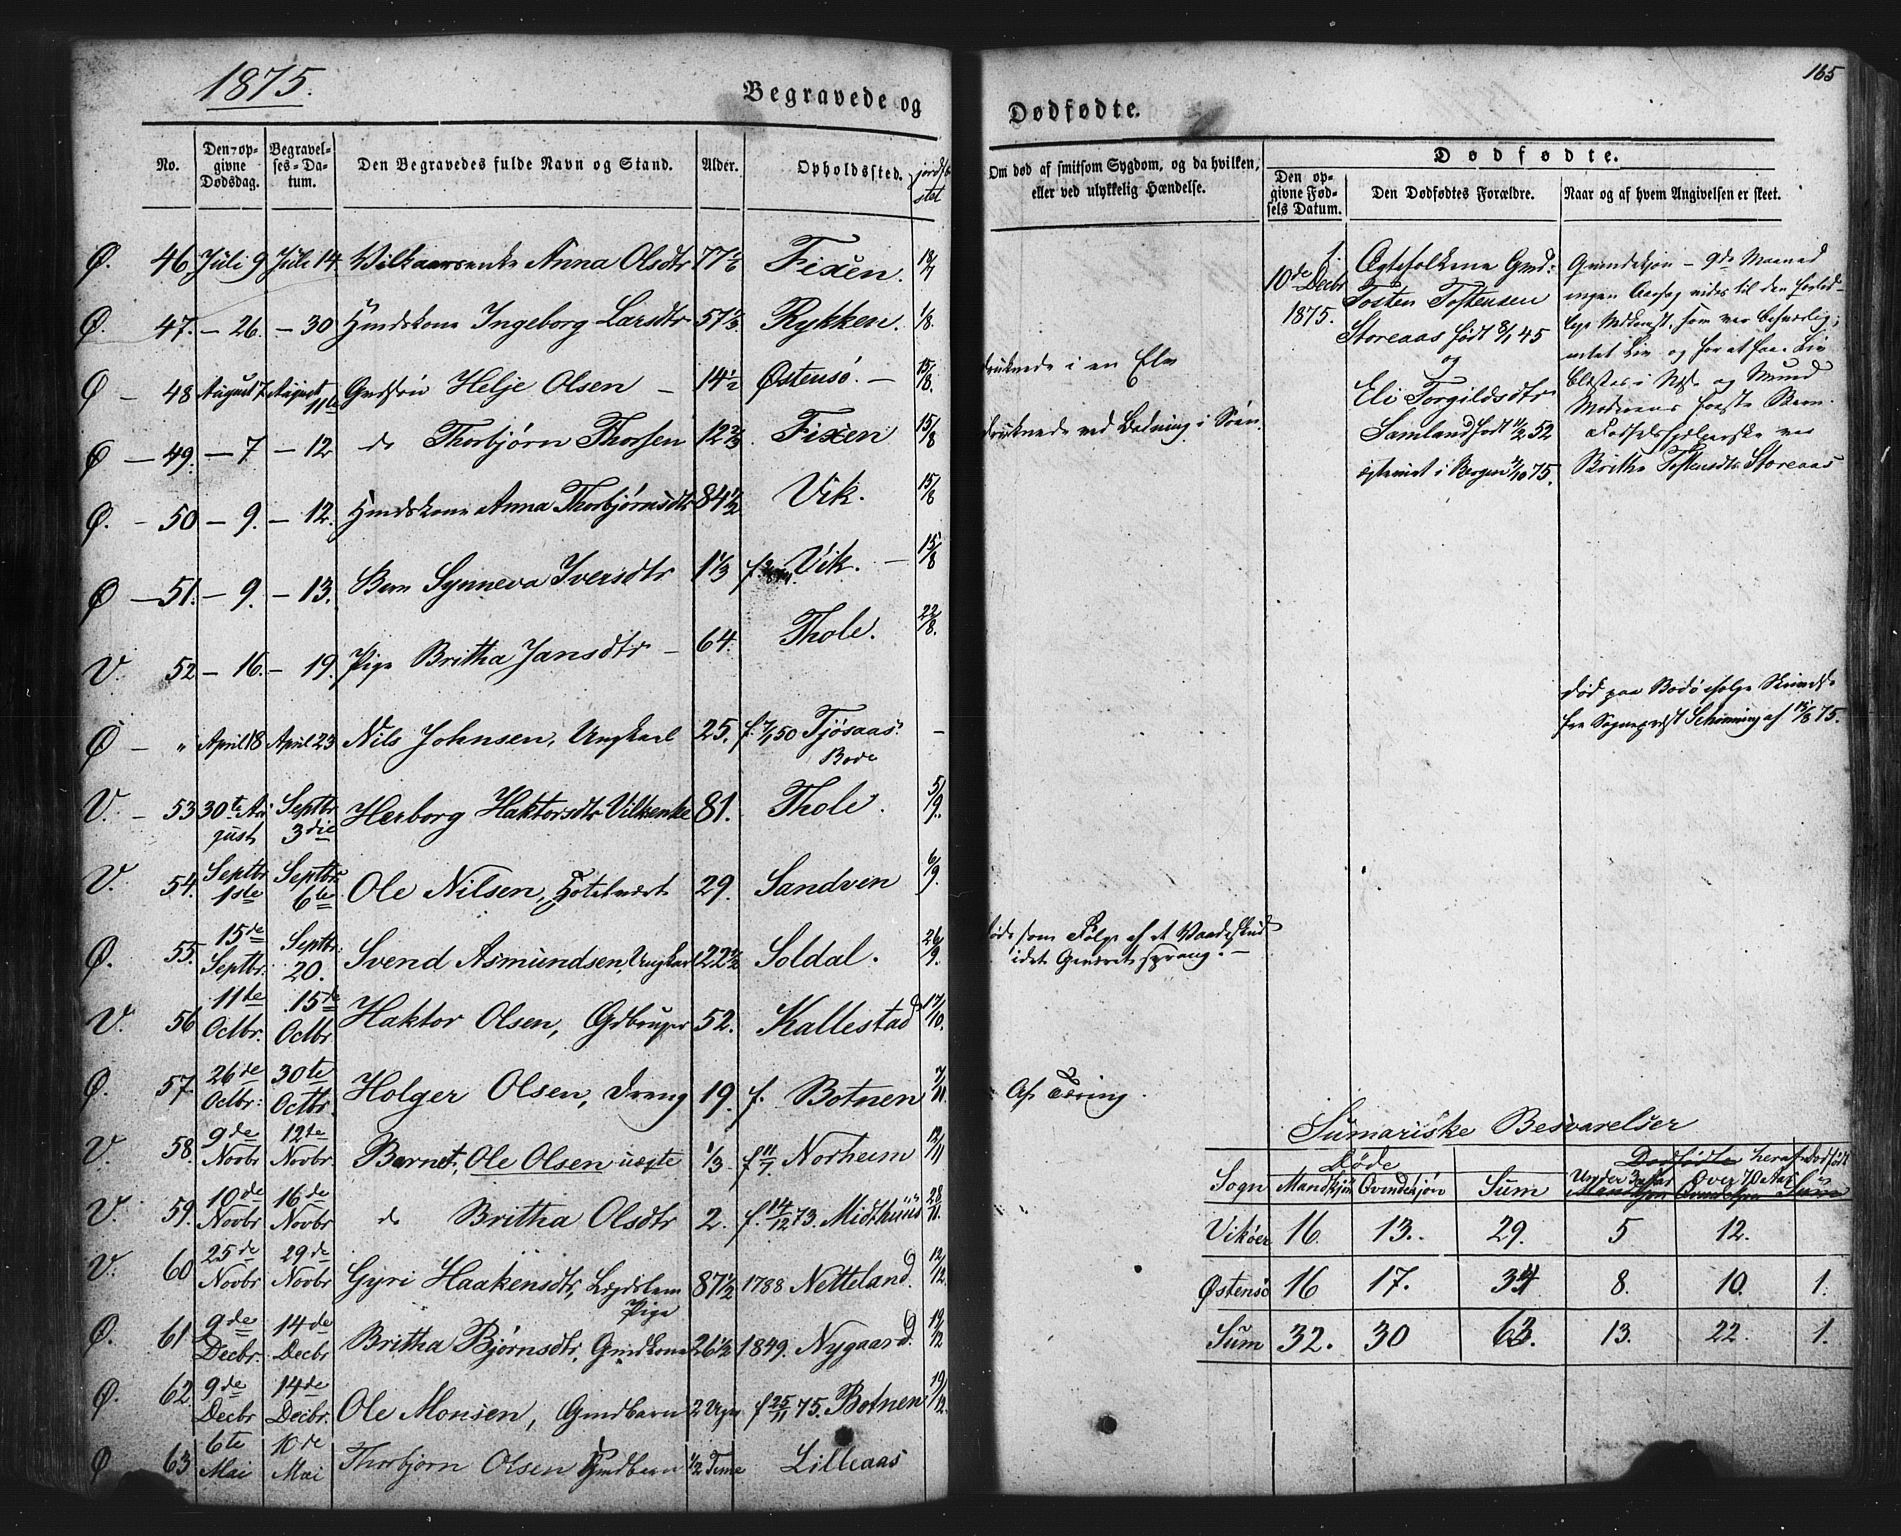 1875.
Begravede og
Dødfødte.
165
No.
Den opgivne Dødsdag.
Begravelses-Datum.
Den Begravedes fulde Navn og Stand.
Alder.
Opholdssted.
jordfæstet
Om død af smitsom Sygdom, og da hvilken, eller ved ulykkelig Hændelse.
Dødfødte.
Den opgivne Fødsels Datum.
Den Dødfødtes Forældre.
Naar og af hvem Angivelsen er skeet.
Ø. 46 Juli 9 Juli 14. Anna Olsdtr 77 Fixen. 18/7
Ø. 47. – 26. – 30 Ingeborg Larsdtr 57 Rykken. 1/8.
Ø – 48 August 7. August 11te Helje Olsen – 14 1/2 Østensø. – 15/8. druknede i en Elv
Ø – 49. – 7 – 12. do Thorbjørn Thorsen 12 2/3 Fixen 15/8 druknede ved Badning i Søen.
Ø. – 50 – 9. – 12. Anna Thorbjørnsdtr 84 1/2 Vik. 15/8
Ø – 51. – 9. – 13. Barn Synneva Iversdtr 1 1/3 f. Vik. – 15/8
V. 52 – 16. – 19. Pige Britha Jansdtr – 64. Thole. 22/8.
Ø – " April 18 April 23 Nils Johnsen, Ungkarl 25. f. 7/1 50 Tjøsaas. –
Bodø
V. – 53 30te August Septbr 3die Herborg Haktorsdtr Vilkenke 81. Thole. 5/9.
V. 54. Septbr 1ste Septbr 6te Ole Nilsen, Hotelvært 29. Sandven 6/9.
Ø. 55. 15de Septbr. Septbr. 20. Svend Asmundsen, Ungkarl 22 1/2 Soldal. 26/9. døde som Følge af et Vaadeskud
idet Geværet sprang. –
V. 56 11te Octbr. 15de Octbr Haktor Olsen, Gdbruger 52. Kallestad 17/10.
Ø. 57. 26de Octbr. 30te Octbr. Holger Olsen, Dreng 19. f. Botnen 7/11. Af Tæring.
V. 58. 9de Novbr 12te Novbr. Barnet, Ole Olsen uægte 1/3. f 11/7 Norheim 12/11
V. 59. 10de Novbr 16de Novbr do Britha Olsdtr 2. f. 14/12 73. Midthuus 28/11.
V. 60 25de Novbr 29de Novbr Gyri Haakensdtr, Lægdslem 87 1/2 1788 Netteland. 12/12
Pige
Ø. 61 9de Decbr. 14de Decbr Britha Bjørnsdtr, Gmdkone 26 1/2 1849. Nygaard. 19/12
Ø. 62 9de Decbr 14de Decbr. Ole Monsen, Gmdbarn 2 Uger f 25/11 75. Botnen 19/12.
Ø 63 6te Mai 10de Mai Thorbjørn Olsen Gmdbarn 1/2 Time Lilleaas
1.
10de Decbr
1875.
Ægtefolkene Gmd:
Tosten Tostensen
Storeaas født 8/1 45
og
Eli Torgildsdtr
Samland født 1/2 52
ægteviet i Bergen 75.
Qvindekjøn – 9de Maaned
ingen Aarsag vides til den
Moderens første Barn.
Fødselshjelperske var
Britha Tostensdtr. Storeaas
død paa Bodø ifølge Skrivelse
fra Sogneprest Schønning af 15/8 75.
Sumariske Besvarelser
Sogn
Døde
Mandkjøn Qvindekjøn Sum
Dødfødte heraf Dødfødt
Under 3 Aar Over 70 Aar
Mandkjøn Qvindekjøn Sum
Vikøer 16. 13. 29. 5 12.
Østensø 16 17. 34 8. 10. 1.
Sum 32. 30 63. 13. 22. 1.